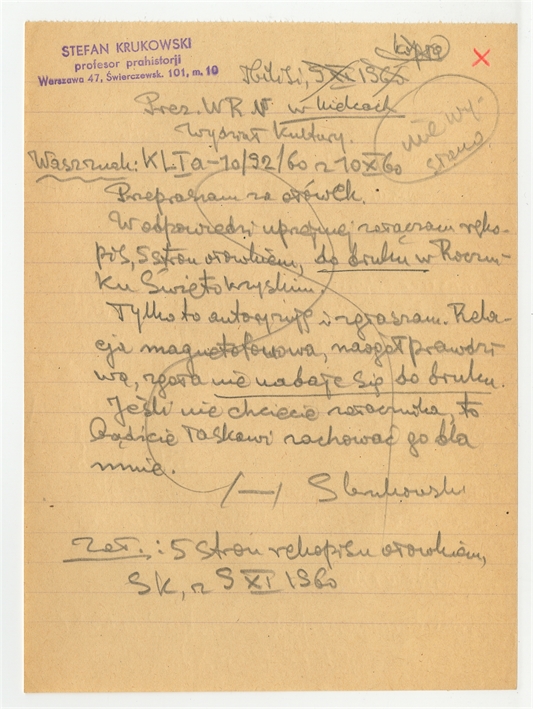 kopia
STEFAN KRUKOWSKI
profesor prahistorji
Warszawa 47, Świerczewsk. 101, m. 10
9 XI 1960
Prez. W R N w Kielcach
Wydział Kultury.
nie wy-
słano
Waszznak: KL.Ia-10/92/60 z 10 XI 60
Przepraszam za ołówek.
W odpowiedzi uprzejmej załączam ręko-
pis, 5 stron ołówkiem, do druku w Roczni-
ku Świętokrzyskim.
Tylko to autoryzuję i zgłaszam. Rela-
cja magnetofonowa, naogół prawdzi
wa, zgoła nie nadaje się do druku.
Jeśli nie chcecie załącznika, to
bądźcie łaskawi zachować go dla
mnie.
/—/ S Krukowski
Zał.: 5 stron rękopisu ołówkiem,
SK, z 9 XI 1960